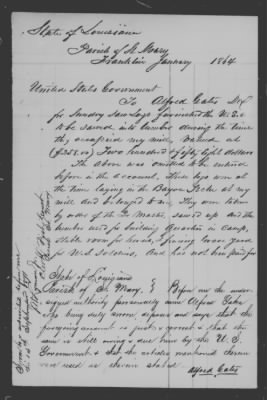 State of Louisiana
Parish of St. Mary
Franklin January 1864
United States Government
To Alfred Gates Dr
for Sundry Saw Logs furnished the U.S.
to be sawed into lumber during the time
they occupied my mill, Valued at
($258.00) Two hundred & fifty eight dollars
The above was omitted to be entered
before in the account, these logs were at
the time laying in the Bayou Teche at my
mill and belonged to me, They were taken
by order of the Qr Master, sawed up and the
lumber used for building Quarters in Camp,
for
U.S. Soldiers, And has not been paid for
State of Louisiana
Parish of St. Mary. Before me the under
signed authority personally came Alfred Gates
who being duly sworn deposes and says that the
foregoing amount is just & correct & that the
same is still owing & due him by the U.S.
Government & that the articles mentioned therein
were used as therein stated
Alfred Gates
Sworn to & subscribed before me